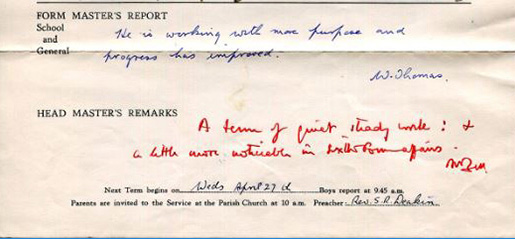 FORM MASTER'S REPORT
School
and
General
He is working with more purpose and
progress has improved.
W. Thomas.
HEAD MASTER'S REMARKS
A term of quiet, steady work: &
a little more noticeable in Sixth Form affairs.
Next Term begins on Weds April 27th Boys report at 9.45 a.m.
Parents are invited to the Service at the Parish Church at 10 a.m. Preacher: Rev. S.R. Deakin